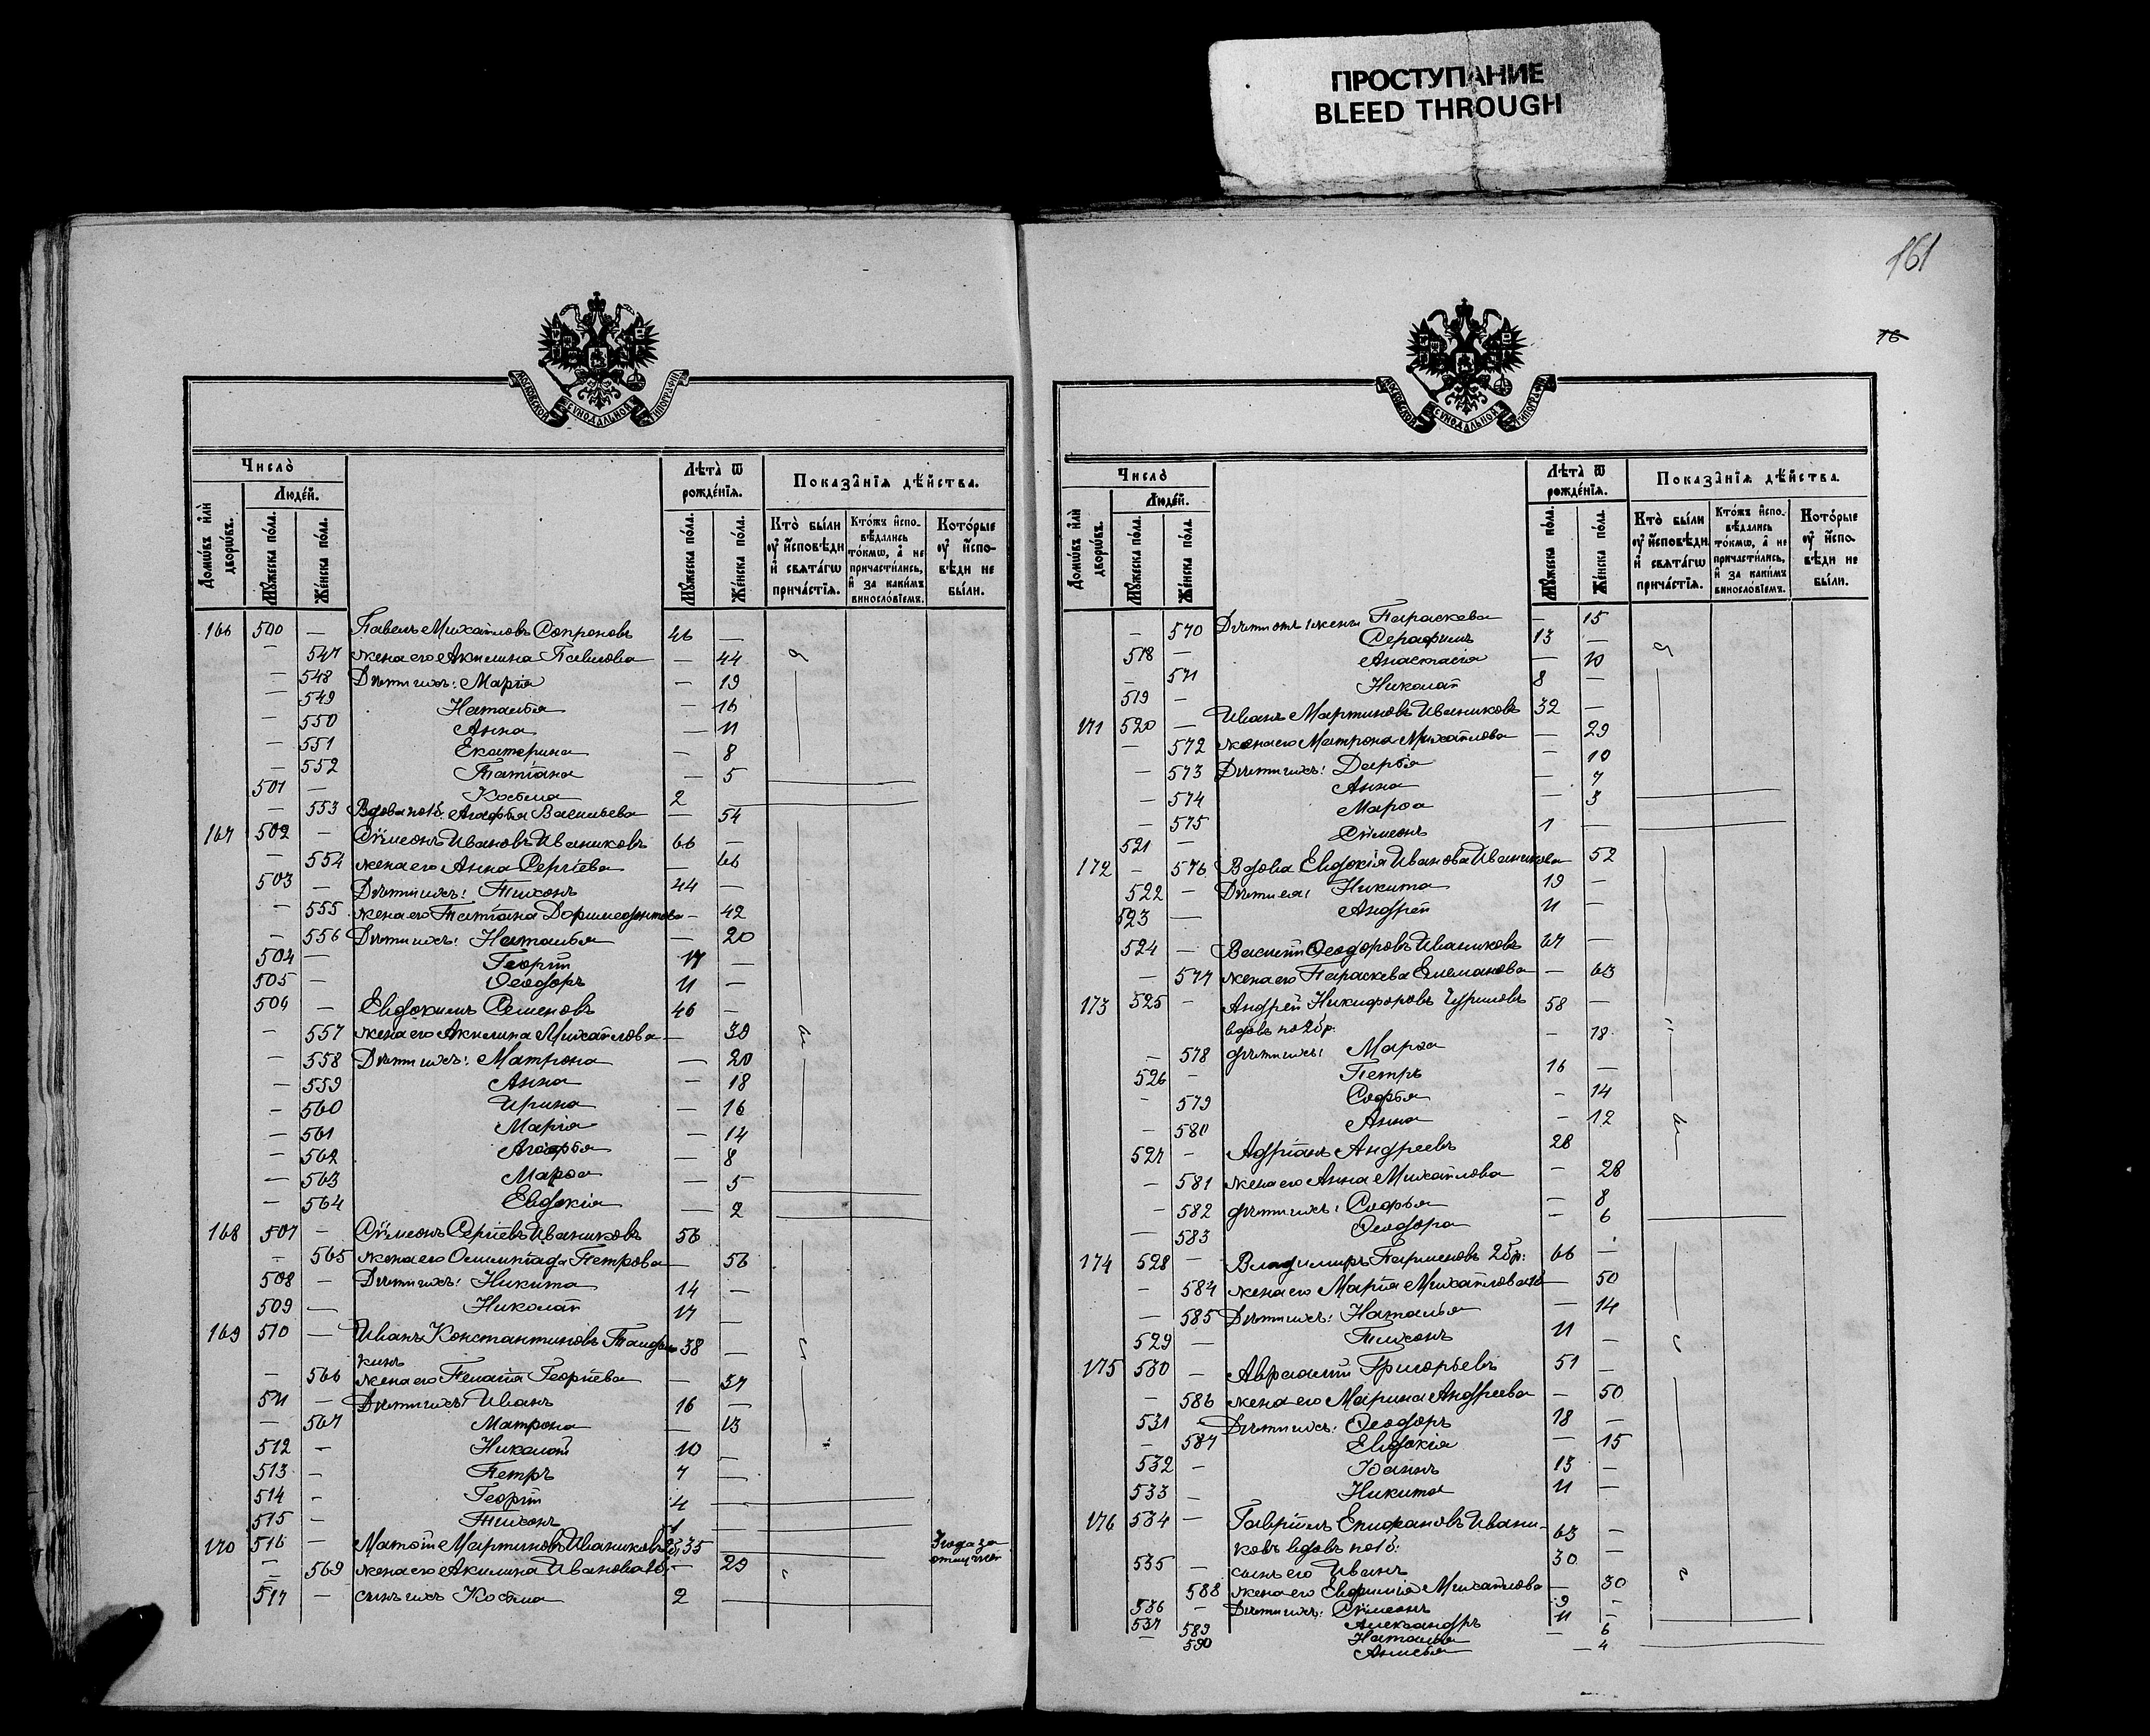 ПРОСТУПАНИЕ
BLEED THROUGH
161
16
МОСКОВСКОЙ СѴНОДАЛЬНОЙ ТИПОГРАФІИ
Число̀
Людей.
Домѡвъ и҆лѝ дворѡвъ.
Мꙋжеска пола.
Женска пола.
Лѣта̀ ѿ рожденїѧ.
Мꙋжеска пола.
Женска пола.
Показанїѧ дѣйства.
Кто̀ были ᲂу҆ и҆сповѣди и҆ свѧтагѡ причастїѧ.
Ктожъ и҆сповѣдались токмѡ, а҆ не причастились, и҆ за какимъ винословїемъ.
Которые ᲂу҆ и҆сповѣди не были.
166 500 — Павелъ Михайловъ Сопроновъ 46 —
— 547 жена его Акилина Павлова — 44
— 548 Дѣти ихъ: Марія — 19
— 549 Наталья — 16
— 550 Анна — 11
— 551 Екатерина — 8
— 552 Татіана — 5
501 — Косьма 2
— 553 Вдова по 1б. Агафья Васильева — 54
167 502 — Сѵмеонъ Ивановъ Иваниковъ 66 —
— 554 жена его Анна Сергіева — 66
503 — Дѣти ихъ: Тихонъ 44 —
— 555 жена его Татіана Доримедонтова — 42
— 556 Дѣти ихъ: Наталья — 20
504 — Георгій 17 —
505 — Ѳеодоръ 11 —
506 — Евдокимъ Семеновъ 46 —
— 557 жена его Акилина Михайлова — 39
— 558 Дѣти ихъ: Матрона — 20
— 559 Анна — 18
— 560 Ирина — 16
— 561 Марія — 14
— 562 Агафья — 8
— 563 Марѳа — 5
— 564 Евдокія — 2
168 507 — Сѵмеонъ Сергіевъ Иваниковъ 56
— 565 жена его Олимпіада Петрова — 56
508 — Дѣти ихъ: Никита 14 —
509 — Николай 17 —
169 510 — Иванъ Константиновъ 38 —
кинъ
— 566 жена его Пелагія Георгіева — 37
511 — Дѣти ихъ: Иванъ 16 —
— 567 Матрона — 13
512 — Николай 10 —
513 — Петръ 7 —
514 — Георгій 4
515 — Тихонъ 1
170 516 — Матѳій Мартиновъ Иваниковъ 2б. 35
3 года за
— 569 жена его Акилина Иванова 2б. — 29
517 — сынъ ихъ Косьма 2
Число̀
Людей.
Домѡвъ и҆лѝ дворѡвъ.
Мꙋжеска пола.
Женска пола.
Лѣта̀ ѿ рожденїѧ.
Мꙋжеска пола.
Женска пола.
Показанїѧ дѣйства.
Кто̀ были ᲂу҆ и҆сповѣди и҆ свѧтагѡ причастїѧ.
Ктожъ и҆сповѣдались токмѡ, а҆ не причастились, и҆ за какимъ винословїемъ.
Которые ᲂу҆ и҆сповѣди не были.
— 570 Дѣти отъ 1 жены Параскева — 15
518 — Серафимъ 13 —
— 571 Анастасія — 10
519 — Николай 8 —
171 520 — Иванъ Мартиновъ Иваниковъ 32 —
— 572 жена его Матрона Михайлова — 29
— 573 Дѣти ихъ: Дарья — 10
— 574 Анна — 7
— 575 Марѳа — 3
521 — Сѵмеонъ 1 —
172 — 576 Вдова Евдокія Иванова Иваникова 52
522 — Дѣти ея: Никита 19 —
523 — Андрей 11 —
524 — Василій Ѳеодоровъ Иваниковъ 67 —
— 577 жена его Параскева Емеліанова — 63
173 525 — Андрей Никифоровъ Чуриловъ 58 —
вдовъ по 2бр.
— 578 дѣти ихъ: Марѳа — 18
526 — Петръ 16 —
— 579 Софья — 14
— 580 Анна — 12
527 — Адріанъ Андреевъ 28
— 581 жена его Анна Михайлова — 28
— 582 дѣти ихъ: Софья — 8
— 583 Ѳеодора — 6
174 528 — Владимиръ Парменовъ 2бр: 66 —
— 584 жена его Марія Михайлова 1б — 50
— 585 Дѣти ихъ: Наталья — 14
529 — Тихонъ 11 —
175 530 — Авраамій Григорьевъ 51 —
— 586 жена его Марина Андреева — 50
531 — Дѣти ихъ: Ѳеодоръ 18 —
— 587 Евдокія — 15
532 — Іоаннъ 13 —
533 — Никита 11 —
176 534 — Гавріилъ Епифановъ Ивани-
ковъ вдовъ по 1б: 63 —
535 — сынъ его Иванъ 30 —
588 жена его Евфимія Михайлова — 30
536 — Дѣти ихъ: Сѵмеонъ 9 —
537 Александръ 11 —
— 589 Наталья — 6
590 Анисья — 4